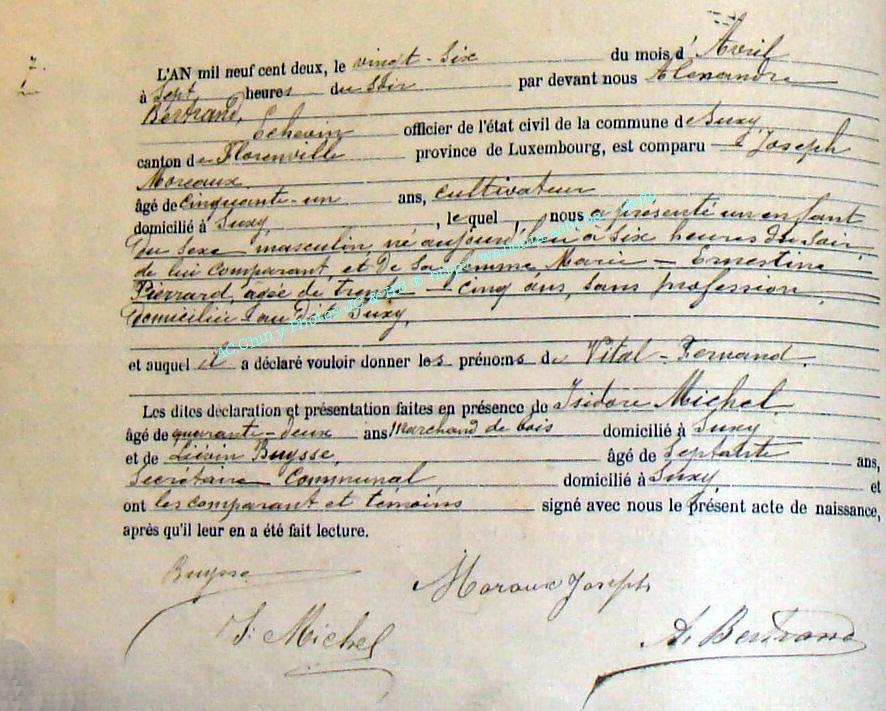 7.
L'AN mil neuf cent deux, le vingt-six du mois d'Avril
à sept heures du soir par devant nous Alexandre
Bertrand,
Echevin officier de l'état civil de la commune de Suxy,
canton de Florenville province de Luxembourg, est comparu Joseph
Moreaux
âgé de cinquante-un ans, cultivateur
domicilié à Suxy, lequel, nous a présenté un enfant
du sexe masculin, né aujourd'hui à six heures du soir,
de lui comparant et de sa femme, Marie-Ernestine
Pierrard, âgée de trente-cinq ans, sans profession,
domiciliée au dit Suxy,
et auquel il a déclaré vouloir donner les prénoms de Vital-Fernand.
Les dites déclaration et présentation faites en présence de Isidore Michel
âgé de quarante-deux ans Marchand de bois domicilié à Suxy
et de Liévin Buysse, âgé de septante ans,
Secrétaire Communal, domicilié à Suxy et
ont les comparant et témoins signé avec nous le présent acte de naissance,
après qu'il leur en a été fait lecture.
Buysse
Moraux Joseph
J. Michel
A. Bertrand
AC Chiny Photos JC &